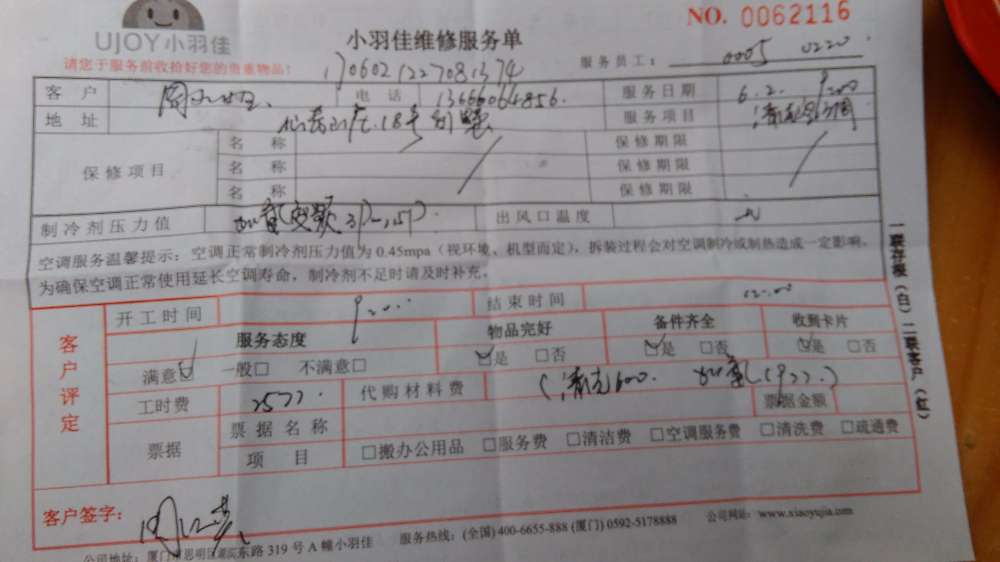 NO. 0062116
UJOY小羽佳
小羽佳维修服务单
请您于服务前收拾好您的贵重物品!
服务员工: 0005 0220
1706021227081374
客户
电话 13666064856.
服务日期 6.2. 9:00
地址 18号
服务项目 清洗空调
保修项目
名称 保修期限
名称 保修期限
名称 保修期限
制冷剂压力值
出风口温度
空调服务温馨提示:空调正常制冷剂压力值为 0.45mpa(视环境、机型而定),拆装过程会对空调制冷或制热造成一定影响。
为确保空调正常使用延长空调寿命,制冷剂不足时请及时补充。
客户评定
开工时间 9:00
结束时间 12:00
服务态度 物品完好 备件齐全 收到卡片
满意☑ 一般□ 不满意□ ☑是 □否 ☑是 □否 ☑是 □否
工时费
代购材料费
(清洗600.
票据
票据名称
票据金额
项目 □搬办公用品 □服务费 □清洁费 □空调服务费 □清洗费 □疏通费
客户签字:
公司地址:厦门市思明区湖滨东路 319 号 A 幢小羽佳
服务热线:(全国) 400-6655-888 (厦门) 0592-5178888
公司网站:www.xiaoyujia.com
一联存根(白)二联客户(红)